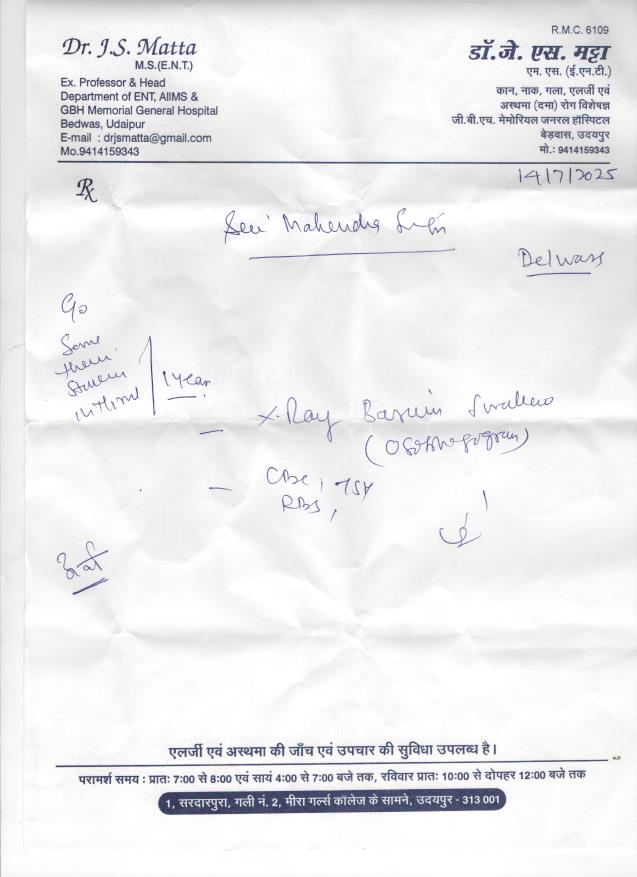 R.M.C. 6109
Dr. J.S. Matta
M.S.(E.N.T.)
Ex. Professor & Head
Department of ENT, AIIMS &
GBH Memorial General Hospital
Bedwas, Udaipur
E-mail : drjsmatta@gmail.com
Mo.9414159343
डॉ.जे. एस. मट्टा
एम. एस. (ई.एन.टी.)
कान, नाक, गला, एलर्जी एवं
अस्थमा (दमा) रोग विशेषज्ञ
जी.बी.एच. मेमोरियल जनरल हॉस्पिटल
बेड़वास, उदयपुर
मो.: 9414159343
14/7/2025
Rx
Mahendra Singh
Delwara
C/o
Some
1 year
X-Ray Barium Swallow
CBC,
RBS,
एलर्जी एवं अस्थमा की जाँच एवं उपचार की सुविधा उपलब्ध है।
परामर्श समय : प्रातः 7:00 से 8:00 एवं सायं 4:00 से 7:00 बजे तक, रविवार प्रातः 10:00 से दोपहर 12:00 बजे तक
1, सरदारपुरा, गली नं. 2, मीरा गर्ल्स कॉलेज के सामने, उदयपुर - 313 001